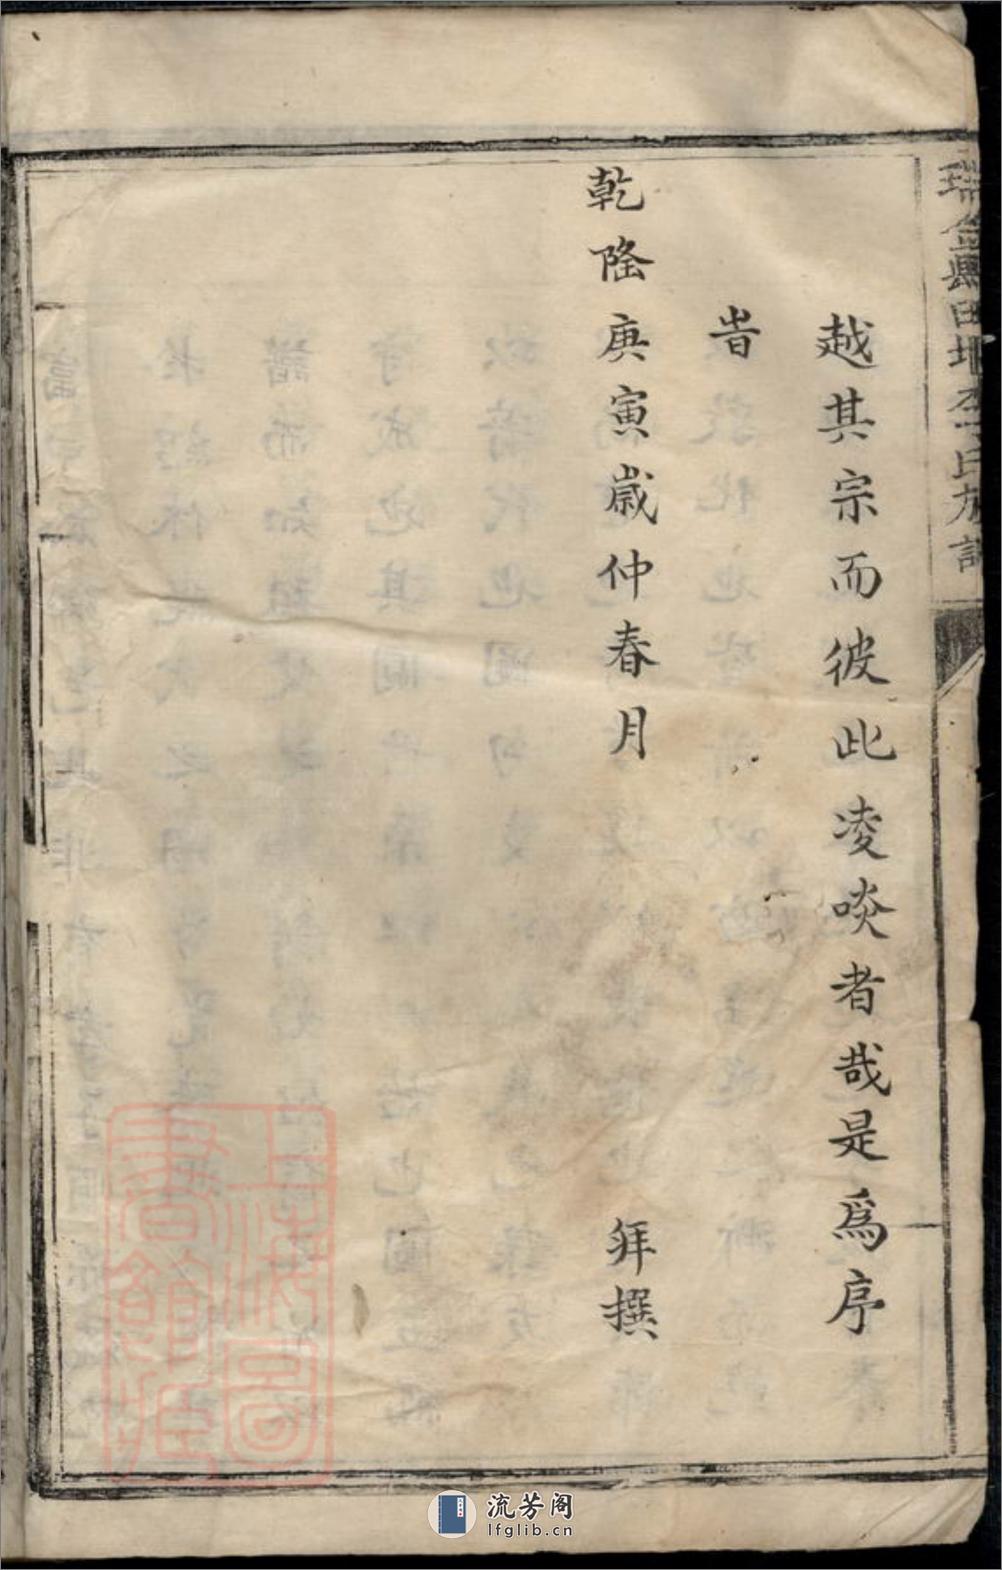 瑞金縣田塅李氏族譜
越其宗而彼此凌啖者哉是爲序
旹
乾隆庚寅歲仲春月 拜撰
上海圖書館藏
流芳阁
lfglib.cn